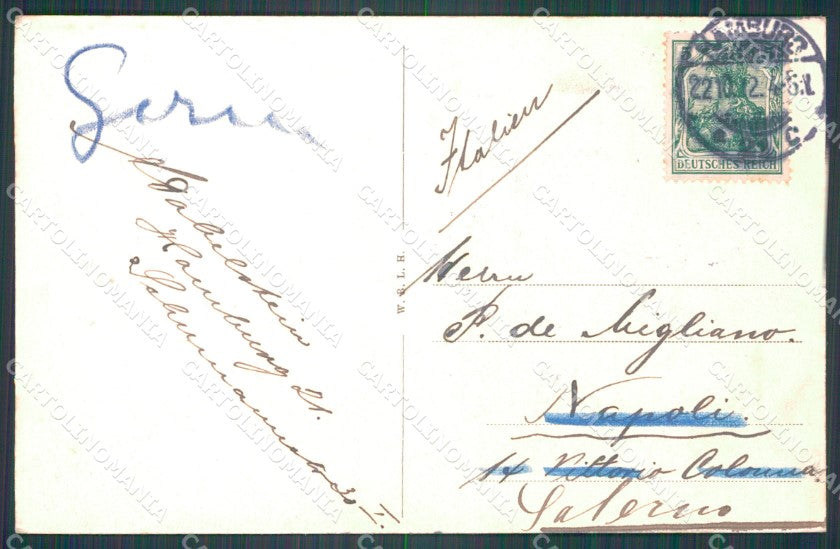 HAMBURG
22.10.12.
DEUTSCHES REICH
Italien
W. S. L. H.
Herrn
P. de Migliano.
Napoli.
14 Vittorio Colonna
Salerno
Hamburg 21.
CARTOLINOMANIA